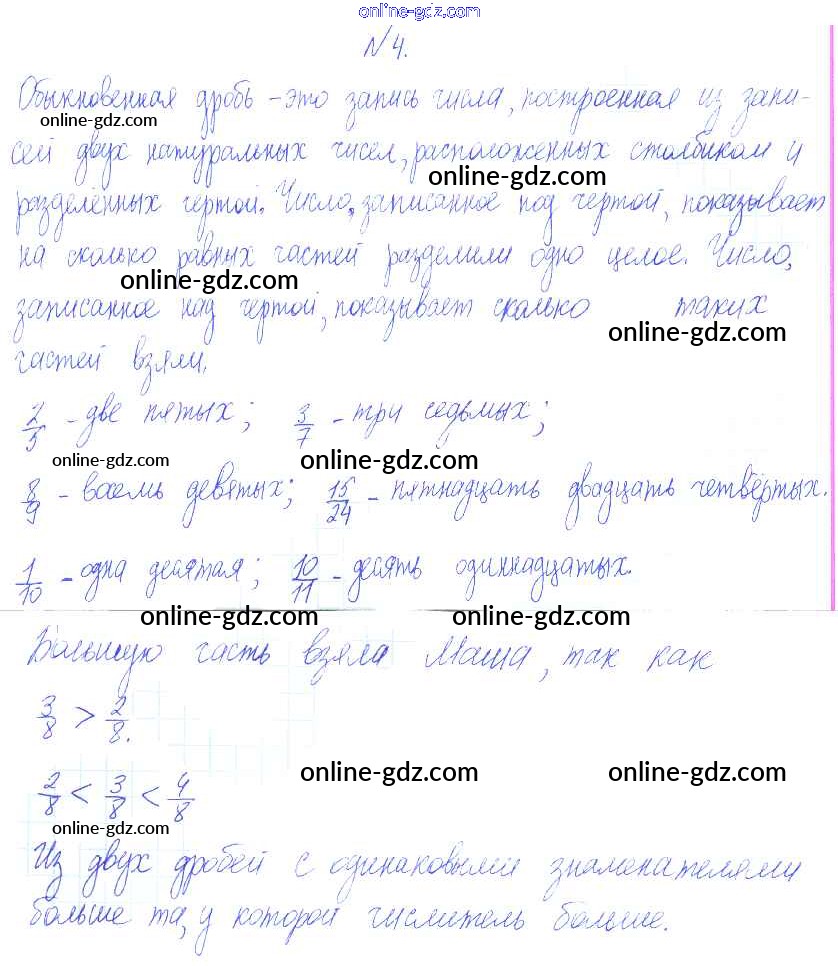 online-gdz.com
№4.
Обыкновенная дробь - это запись числа, построенная из запи-
online-gdz.com
сей двух натуральных чисел, расположенных столбиком и
online-gdz.com
разделённых чертой. Число, записанное под чертой, показывает
на сколько равных частей разделили одно целое. Число,
online-gdz.com
записанное над чертой, показывает сколько таких
online-gdz.com
частей взяли.
2/5 - две пятых; 3/7 - три седьмых;
online-gdz.com online-gdz.com
8/9 - восемь девятых; 15/24 - пятнадцать двадцать четвёртых.
1/10 - одна десятая; 10/11 - десять одиннадцатых.
online-gdz.com online-gdz.com
Большую часть взяла Маша, так как
3/8 > 2/8.
online-gdz.com online-gdz.com
2/8 < 3/8 < 4/8
online-gdz.com
Из двух дробей с одинаковыми знаменателями
больше та, у которой числитель больше.